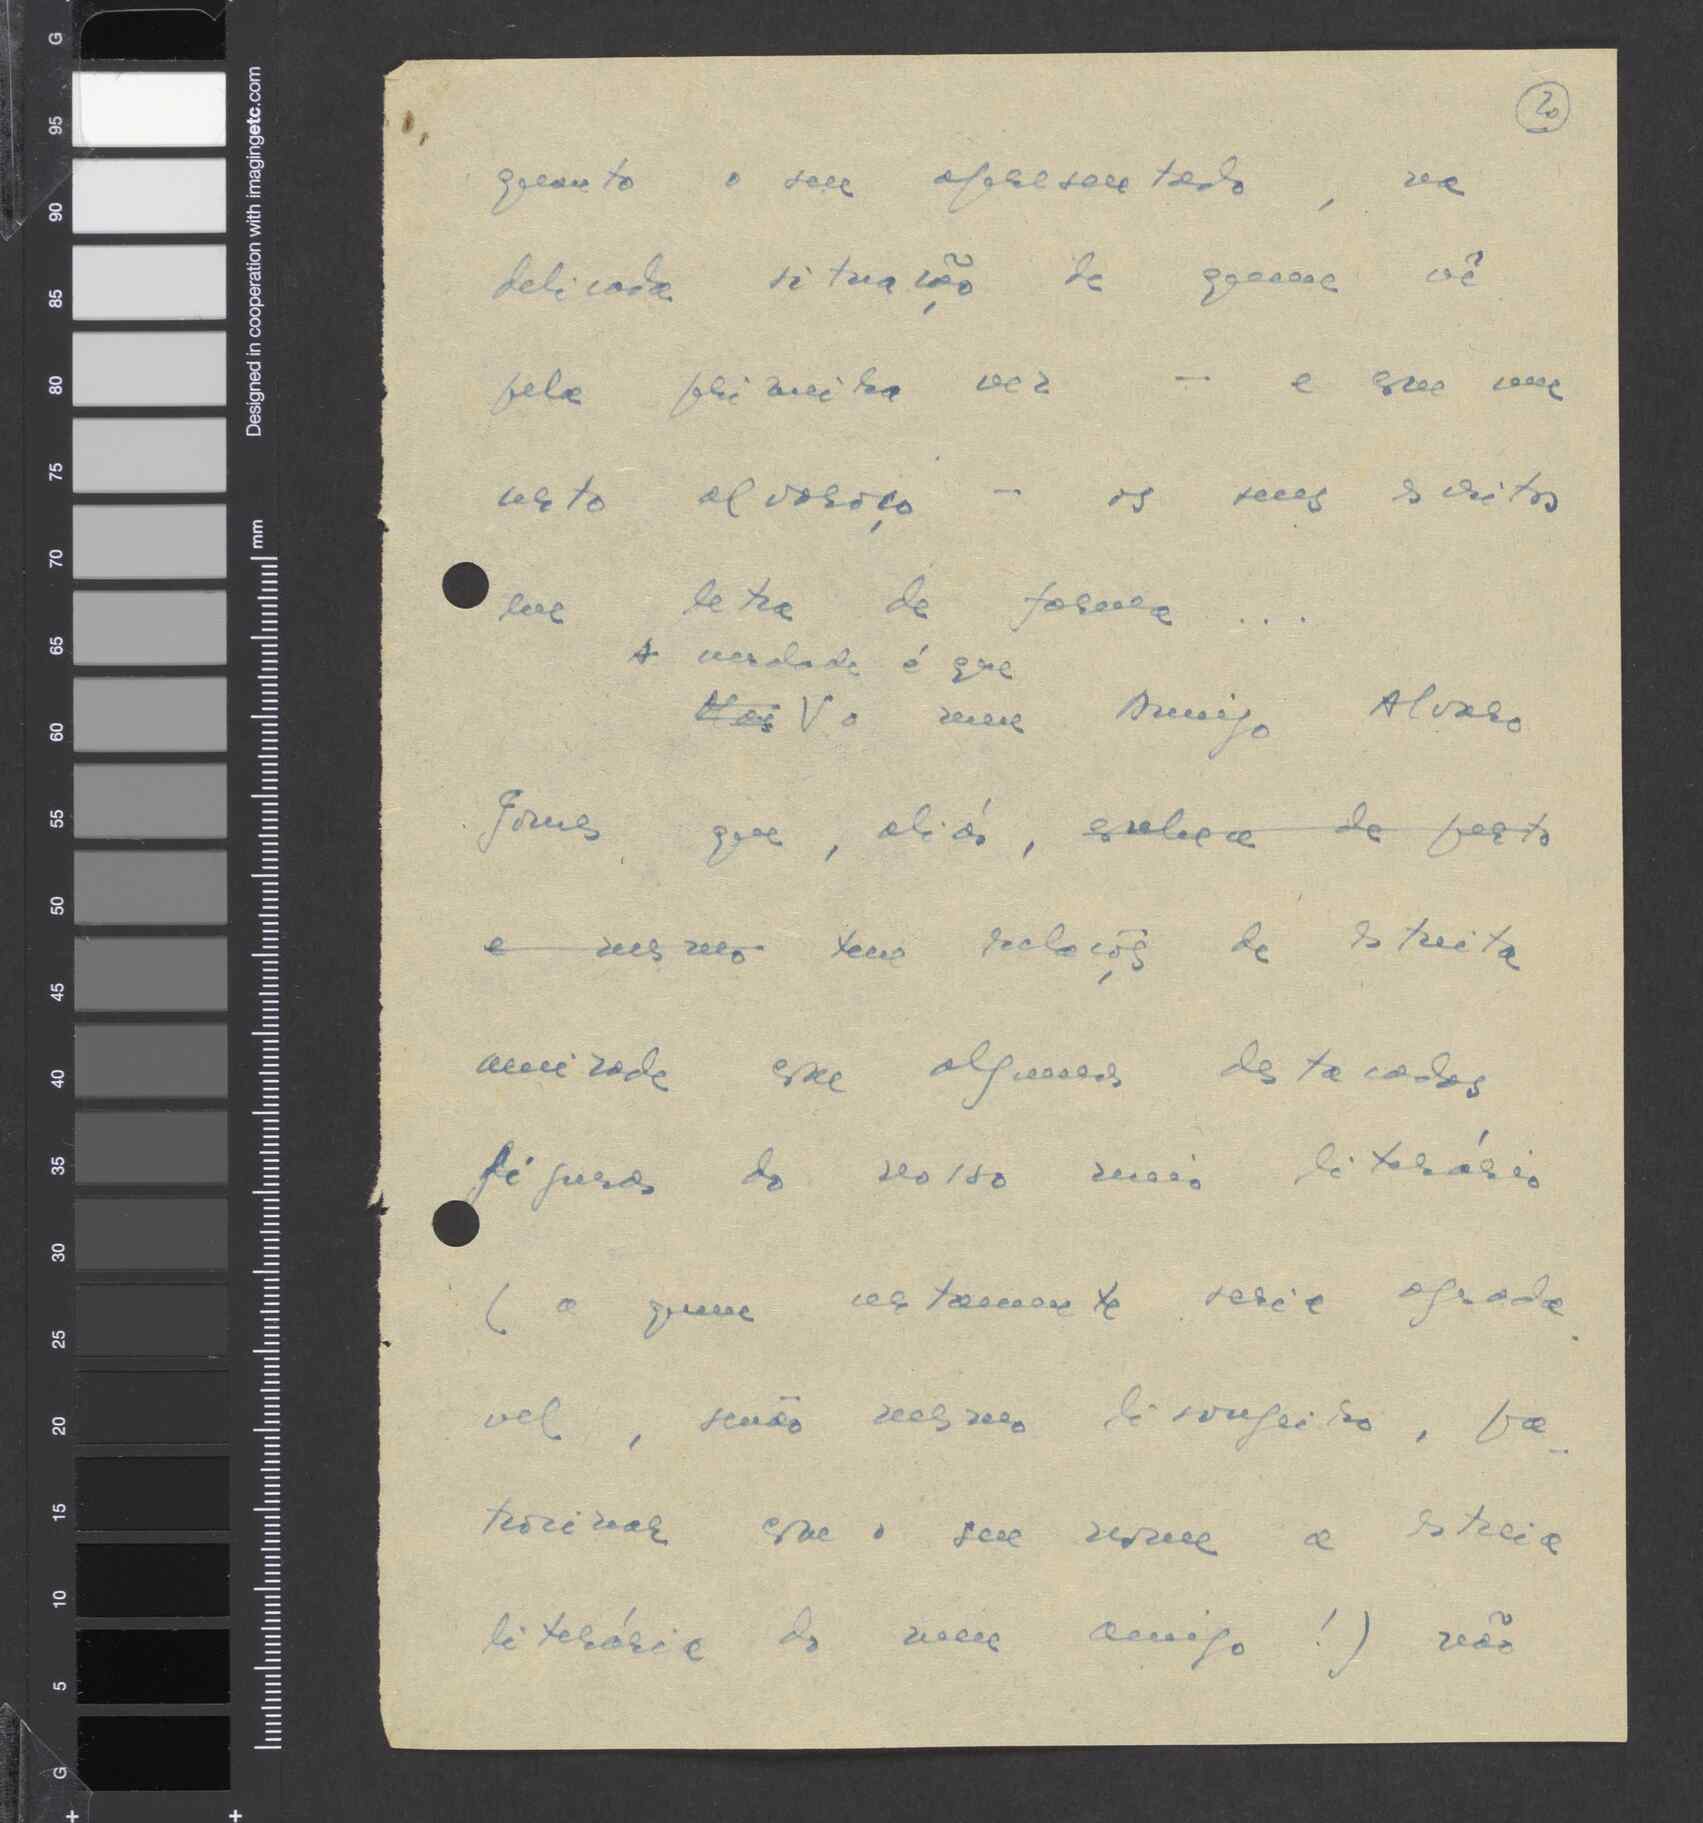 20
quanto o seu apresentado, na
delicada situação de quem vê
pela primeira vez – e com um
certo alvoroço – os seus escritos
em letra de forma ...
A verdade é que
Mas V o meu Amigo Alvaro
Gomes que, aliás, conhece de perto
e mesmo tem relações de estreita
amizade com algumas destacadas
figuras do nosso meio literário
(a quem certamente seria agrada
vel, senão mesmo lisongeiro, pa-
trocinar com o seu nome a estreia
literária do meu amigo!) não
Designed in cooperation with imagingetc.com
mm
G
95
90
85
80
75
70
65
60
55
50
45
40
35
30
25
20
15
10
5
G